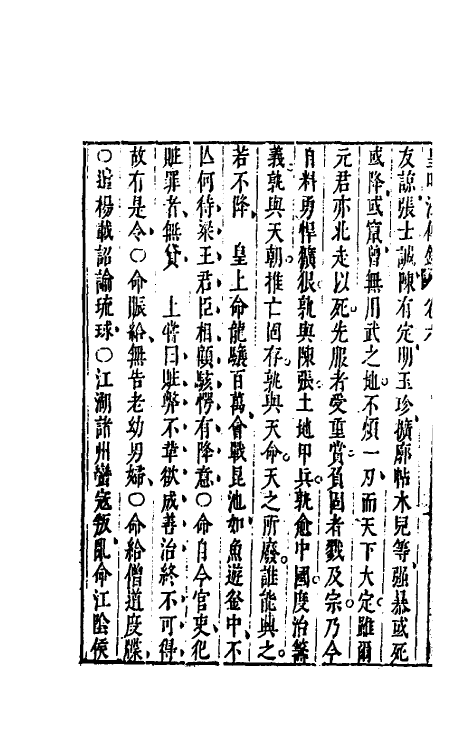 皇明法傳錄 卷六
友諒張士誠陳有定明玉珍擴廓帖木兒等强暴或死
或降或竄曾無用武之地不煩一刃而天下大定雖爾
元君亦北走以死先服者受重賞負固者戮及宗乃今
自料勇悍獷狠孰與陳張土地甲兵孰愈中國度治籌
義孰與天朝推亡固存孰與天命天之所廢誰能興之
若不降　皇上命龍驤百萬會戰昆池如魚遊釜中不
亾何待梁王君臣相顧駭愕有降意○命自今官吏犯
贓罪者無貸　上嘗曰贓弊不革欲成善治終不可得
故有是令○命賑給無告老幼男婦○命給僧道度牒
○遣楊載詔諭琉球○江湖諸州蠻寇叛亂命江陰侯